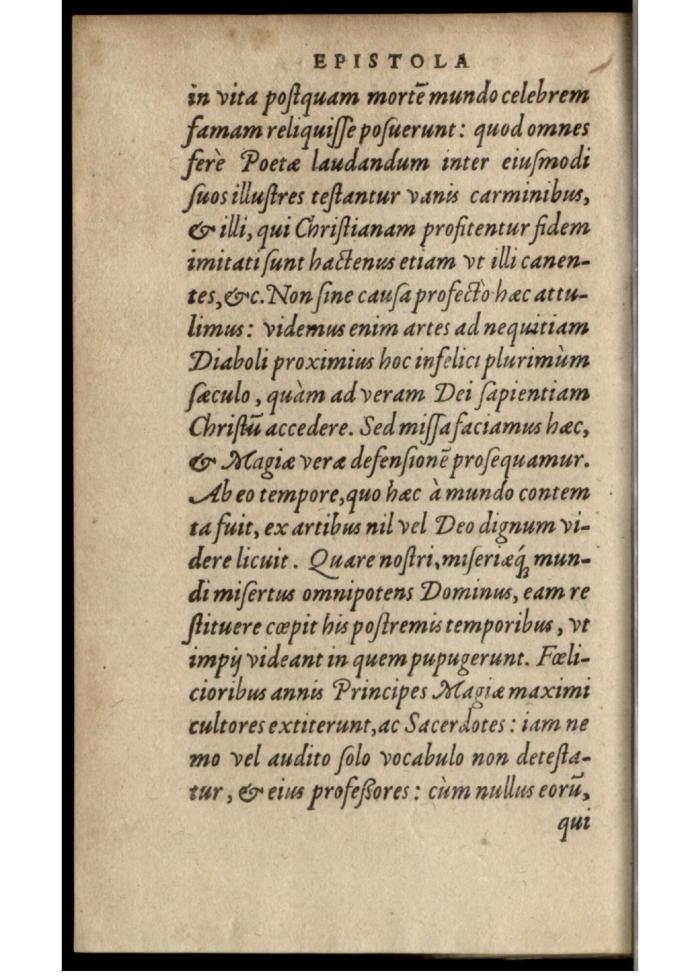 EPISTOLA
in vita poſtquam mortē mundo celebrem
famam reliquiſſe poſuerunt: quod omnes
ferè Poetæ laudandum inter eiuſmodi
ſuos illuſtres teſtantur vanis carminibus,
& illi, qui Chriſtianam profitentur fidem
imitati ſunt hactenus etiam vt illi canen-
tes, &c. Non ſine cauſa profectò hæc attu-
limus: videmus enim artes ad nequitiam
Diaboli proximius hoc infelici plurimùm
ſæculo, quàm ad veram Dei ſapientiam
Chriſtū accedere. Sed miſſa faciamus hæc,
& Magiæ veræ defenſionē proſequamur.
Ab eo tempore, quo hæc à mundo contem
ta fuit, ex artibus nil vel Deo dignum vi-
dere licuit. Quare noſtri, miſeriæq́; mun-
di miſertus omnipotens Dominus, eam re
ſtituere cœpit his poſtremis temporibus, vt
impij videant in quem pupugerunt. Fœli-
cioribus annis Principes Magiæ maximi
cultores extiterunt, ac Sacerdotes: iam ne
mo vel audito ſolo vocabulo non deteſta-
tur, & eius profeſſores: cùm nullus eorū,
qui